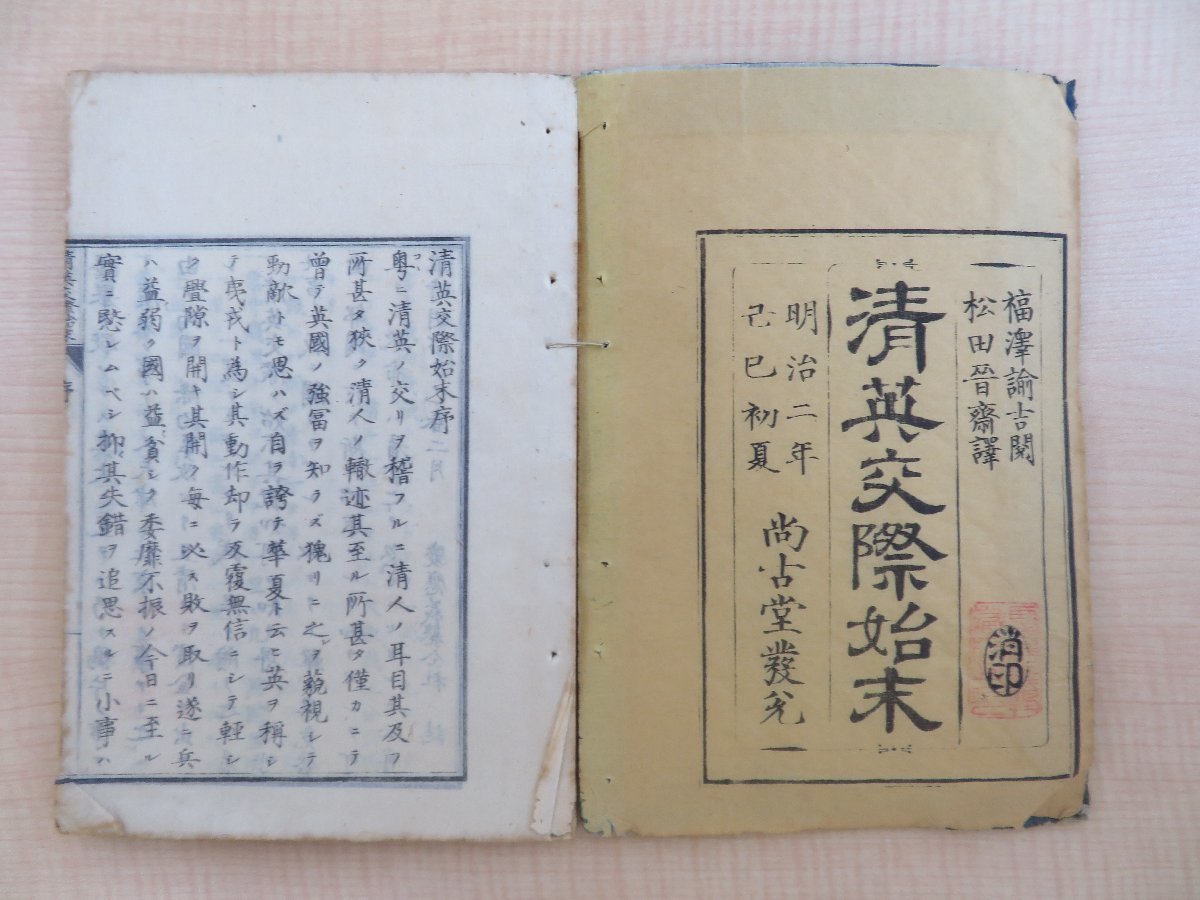 福澤諭吉閲
松田晉齋譯
清英交際始末
明治二年
己巳初夏
尚古堂發兌
消印
清英交際始末序
粤ニ清英ノ交リヲ稽フルニ清人ノ耳目其及フ
所甚タ狹ク清人ノ轍迹其至ル所甚タ僅カニテ
曾テ英國ノ強冨ヲ知ラズ猥リニ之ヲ藐視シテ
勁敵トモ思ハズ自ラ誇テ華夏ト云ヒ英ヲ稱シ
テ夷戎ト為シ其動作却ラ反覆無信ニシテ輕シ
ク釁隙ヲ開キ其開ク毎ニ必ス敗ヲ取リ遂ニ兵
ハ益弱ク國ハ益貧シク委靡不振ノ今日ニ至ル
實ニ愍レムベシ抑其失錯ヲ追思スルニ小事ハ
序